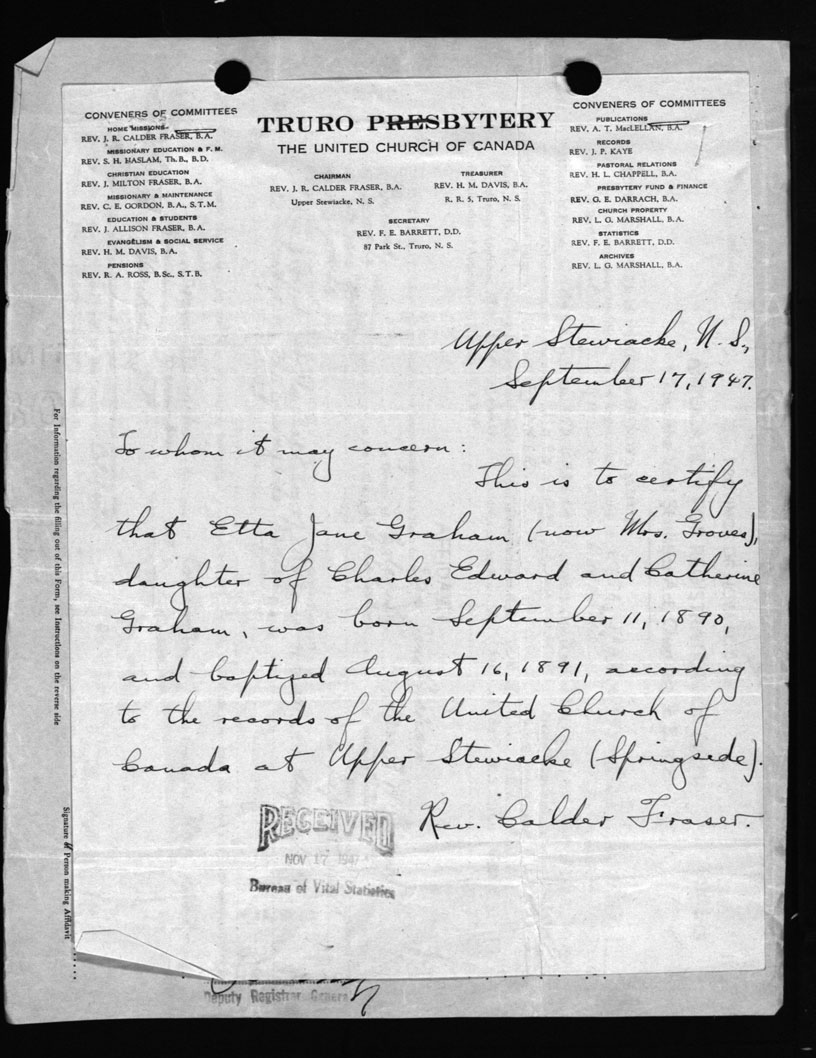 CONVENERS OF COMMITTEES
HOME MISSIONS
REV. J. R. CALDER FRASER, B.A.
MISSIONARY EDUCATION & F. M.
REV. S. H. HASLAM, Th. B., B.D.
CHRISTIAN EDUCATION
REV. J. MILTON FRASER, B.A.
MISSIONARY & MAINTENANCE
REV. C. E. GORDON, B.A., S.T.M.
EDUCATION & STUDENTS
REV. J. ALLISON FRASER, B.A.
EVANGELISM & SOCIAL SERVICE
REV. H. M. DAVIS, B.A.
PENSIONS
REV. R. A. ROSS, B.Sc., S.T.B.
TRURO PRESBYTERY
THE UNITED CHURCH OF CANADA
CHAIRMAN
REV. J. R. CALDER FRASER, B.A.
Upper Stewiacke, N. S.
TREASURER
REV. H. M. DAVIS, B.A.
R. R. 5, Truro, N. S.
SECRETARY
REV. F. E. BARRETT, D.D.
87 Park St., Truro, N. S.
CONVENERS OF COMMITTEES
PUBLICATIONS
REV. A. T. MacLELLAN, B.A.
RECORDS
REV. J. P. KAYE
PASTORAL RELATIONS
REV. H. L. CHAPPELL, B.A.
PRESBYTERY FUND & FINANCE
REV. G. E. DARRACH, B.A.
CHURCH PROPERTY
REV. L. G. MARSHALL, B.A.
STATISTICS
REV. F. E. BARRETT, D.D.
ARCHIVES
REV. L. G. MARSHALL, B.A.
Upper Stewiacke, N. S.,
September 17, 1947.
To whom it may concern:
This is to certify
that Etta Jane Graham (now Mrs. Groves),
daughter of Charles Edward and Catherine
Graham, was born September 11, 1890,
and baptized August 16, 1891, according
to the records of the United Church of
Canada at Upper Stewiacke (Springside).
Rev. Calder Fraser.
RECEIVED
NOV 17 1947
Bureau of Vital Statistics
Deputy Registrar General
For Information regarding the filling out of this Form, see Instructions on the reverse side
Signature of Person making Affidavit